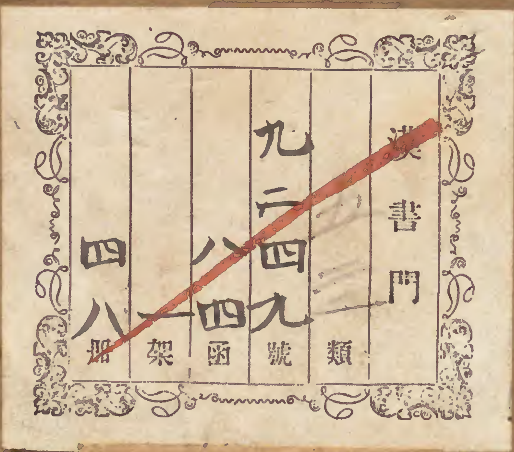 漢書門
類
九二四九號
八四函
一架
四八冊